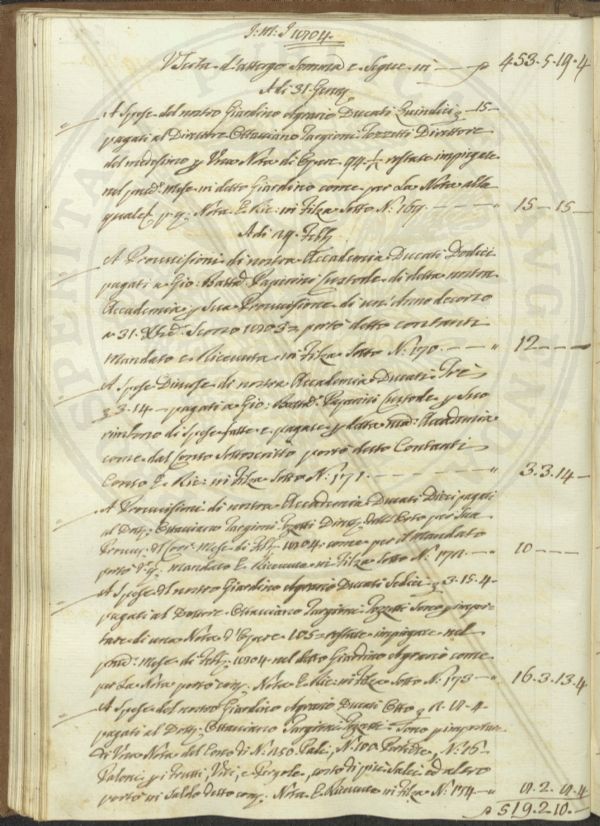 J: M: J 1804.
Uscita d'attergo Somma e Segue in — 453.5.19.4
A dì 31. Genn:
A Spese del nostro Giardino Agrario Ducati Quindici 15 —
pagati al Direttore Ottaviano Targioni Tozzetti Direttore
del medesimo p Una Nota di Opere 94 1/2 restate impiegate
nel pred: Mese in detto Giardino come per La Nota alla
quale p q: Nota E Ric: in Filza Sotto N: 169. — 15 — 15 —
A dì 29. Febb:
A Provvisioni di nostra Accademia Ducati Dodici
pagati a Gio: Batta Papini Custode di detta nostra
Accademia p Sua Provvisione di un Anno decorso
a 31. Xbre Scorso 1803 portò detto contanti
Mandato e Ricevuta in Filza Sotto N: 170. — 12 — — —
A Spese Diverse di nostra Accademia Ducati Tre
3.3.14 — pagati a Gio: Batta Papini Custode p Suo
rimborso di Spese fatte e pagate p detta nra: Accademia
come dal Conto Sottoscritto portò detto Contanti
Conto E Ric: in Filza Sotto N: 171. — 3.3.14 —
A Provvisioni di nostra Accademia Ducati Dieci pagati
al Dott: Ottaviano Targioni Tozzetti Dirett: dell'Orto per Sua
Provv: del Corr: Mese di Febb: 1804. come per il Mandato
portò Mandato E Ricevuta in Filza Sotto N: 172. — 10 — — —
A Spese del nostro Giardino Agrario Ducati Sedici 3.13.4
pagati al Dottore Ottaviano Targioni Tozzetti Sono p impor-
tare di una Nota d'Opere 105 restate impiegate nel
pred: Mese di Febb: 1804. nel detto Giardino Agrario come
per La Nota portò con: Nota E Ric: in Filza Sotto N: 173 — 16.3.13.4
A Spese del nostro Giardino Agrario Ducati Otto
pagati al Dott: Ottaviano Targioni Tozzetti Sono p importare
di Una Nota del Costo di N: 1150 Pali, N: 100 N: 15
p i Frutti, Viti, e Pergole, costo di più Salci ed altro
portò in Saldo detto con: Nota E Ricevuta in Filza N: 174 —
519.2.10. —